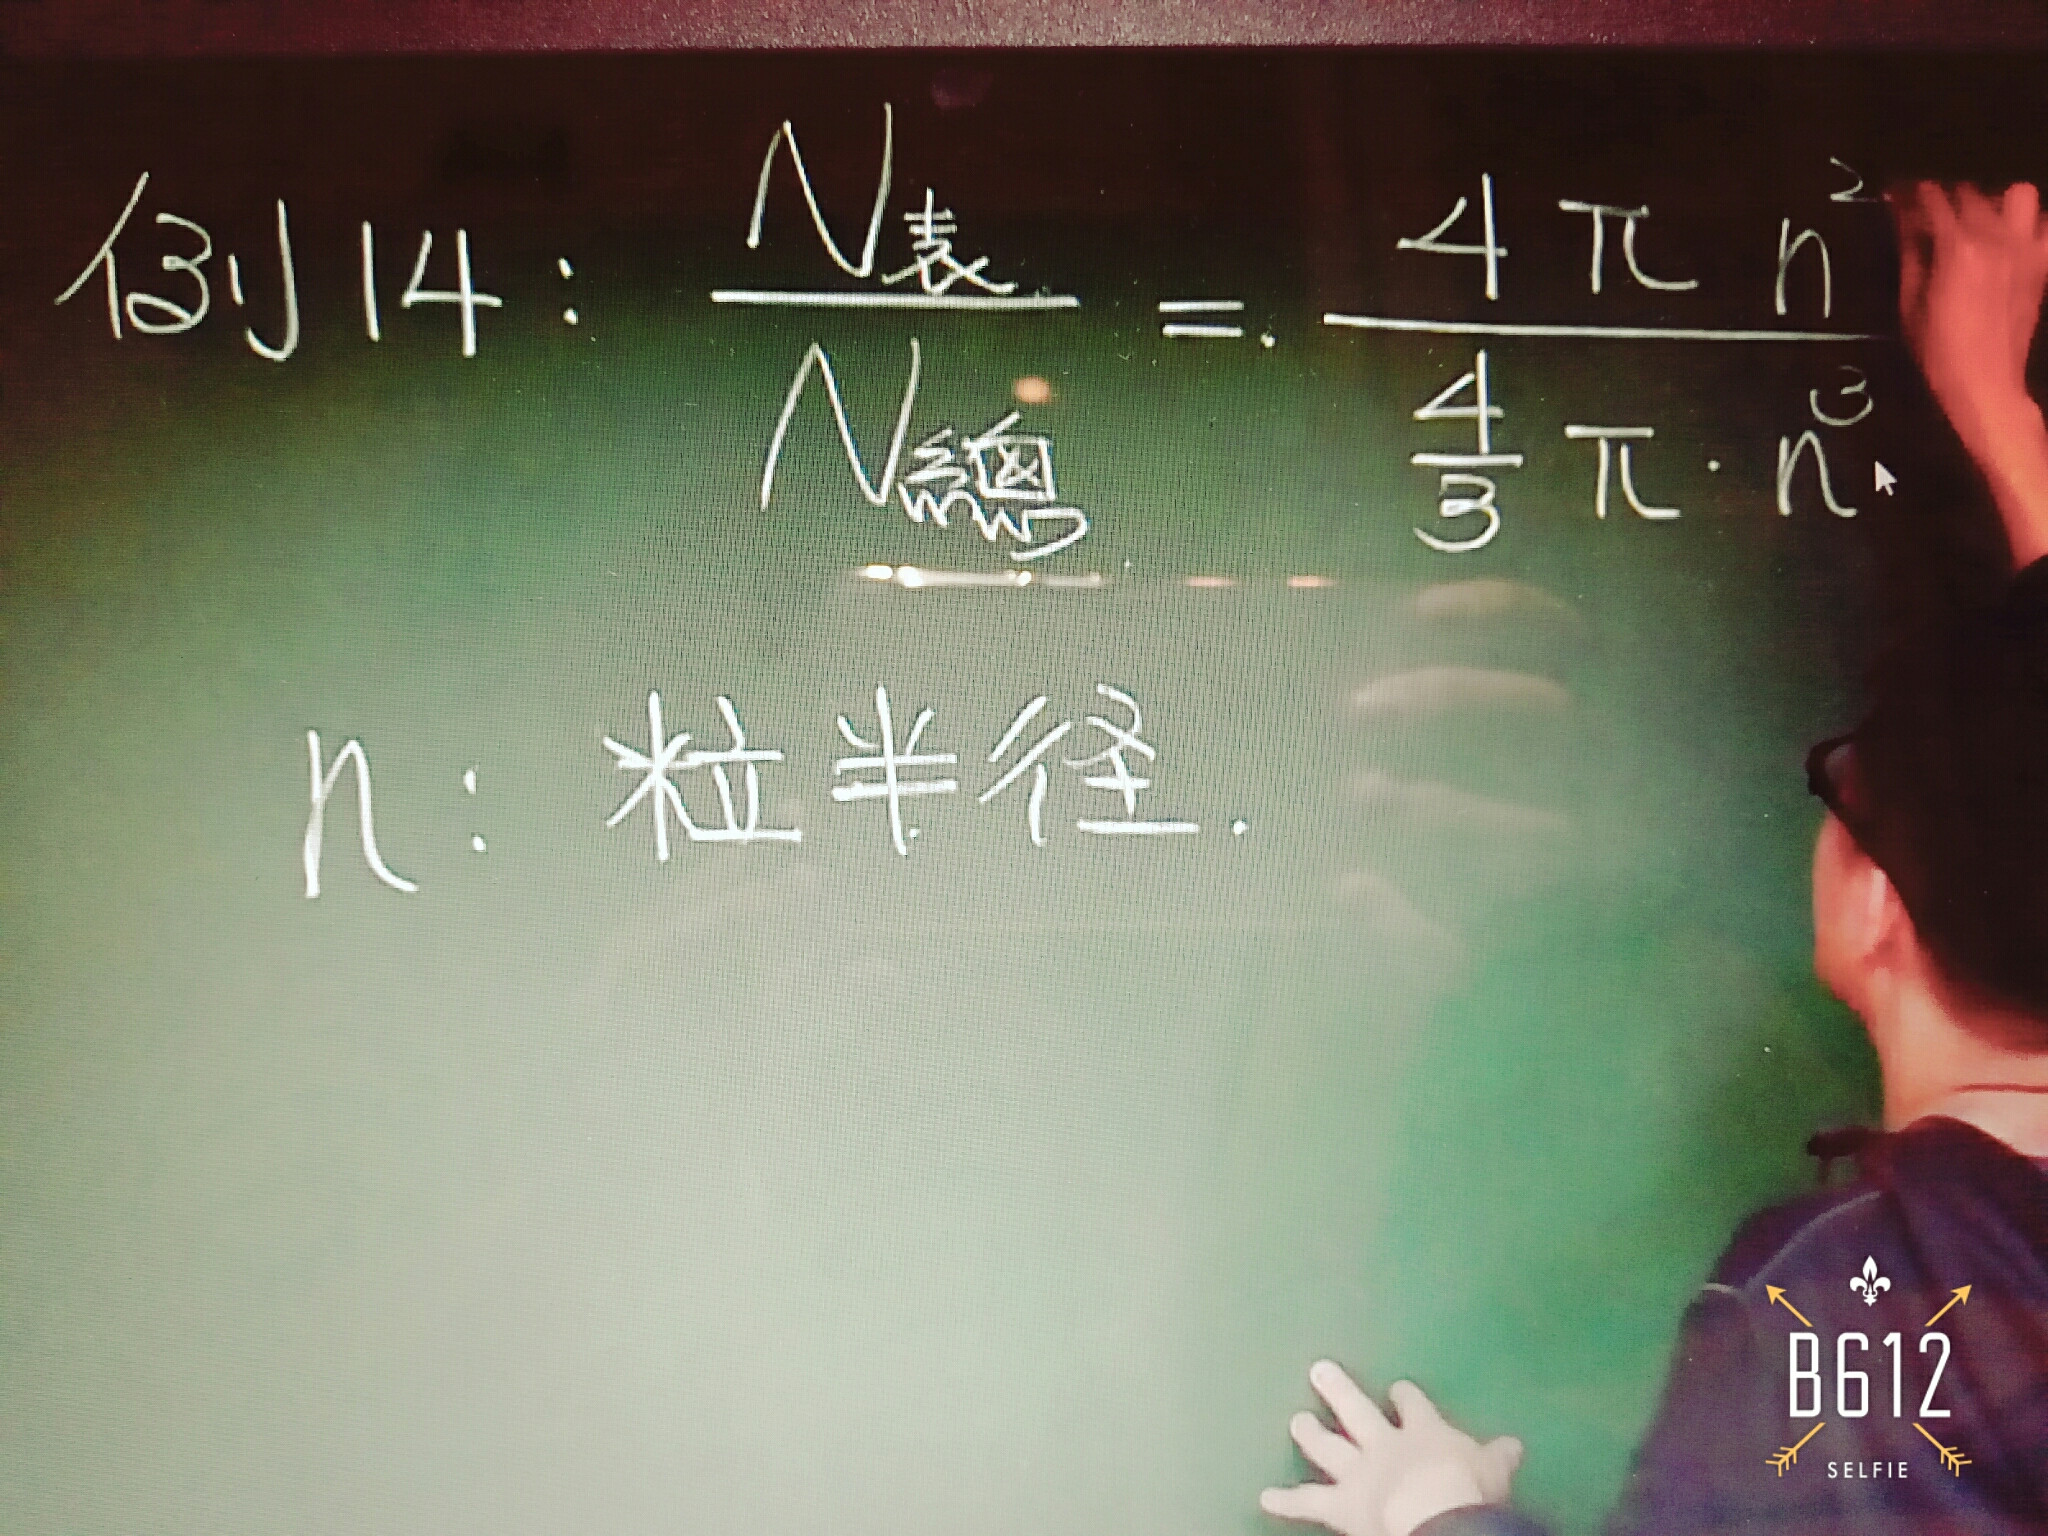 例14: N表/N總 = 4πn²/(4/3)π·n³
n: 粒半径.
B612
SELFIE